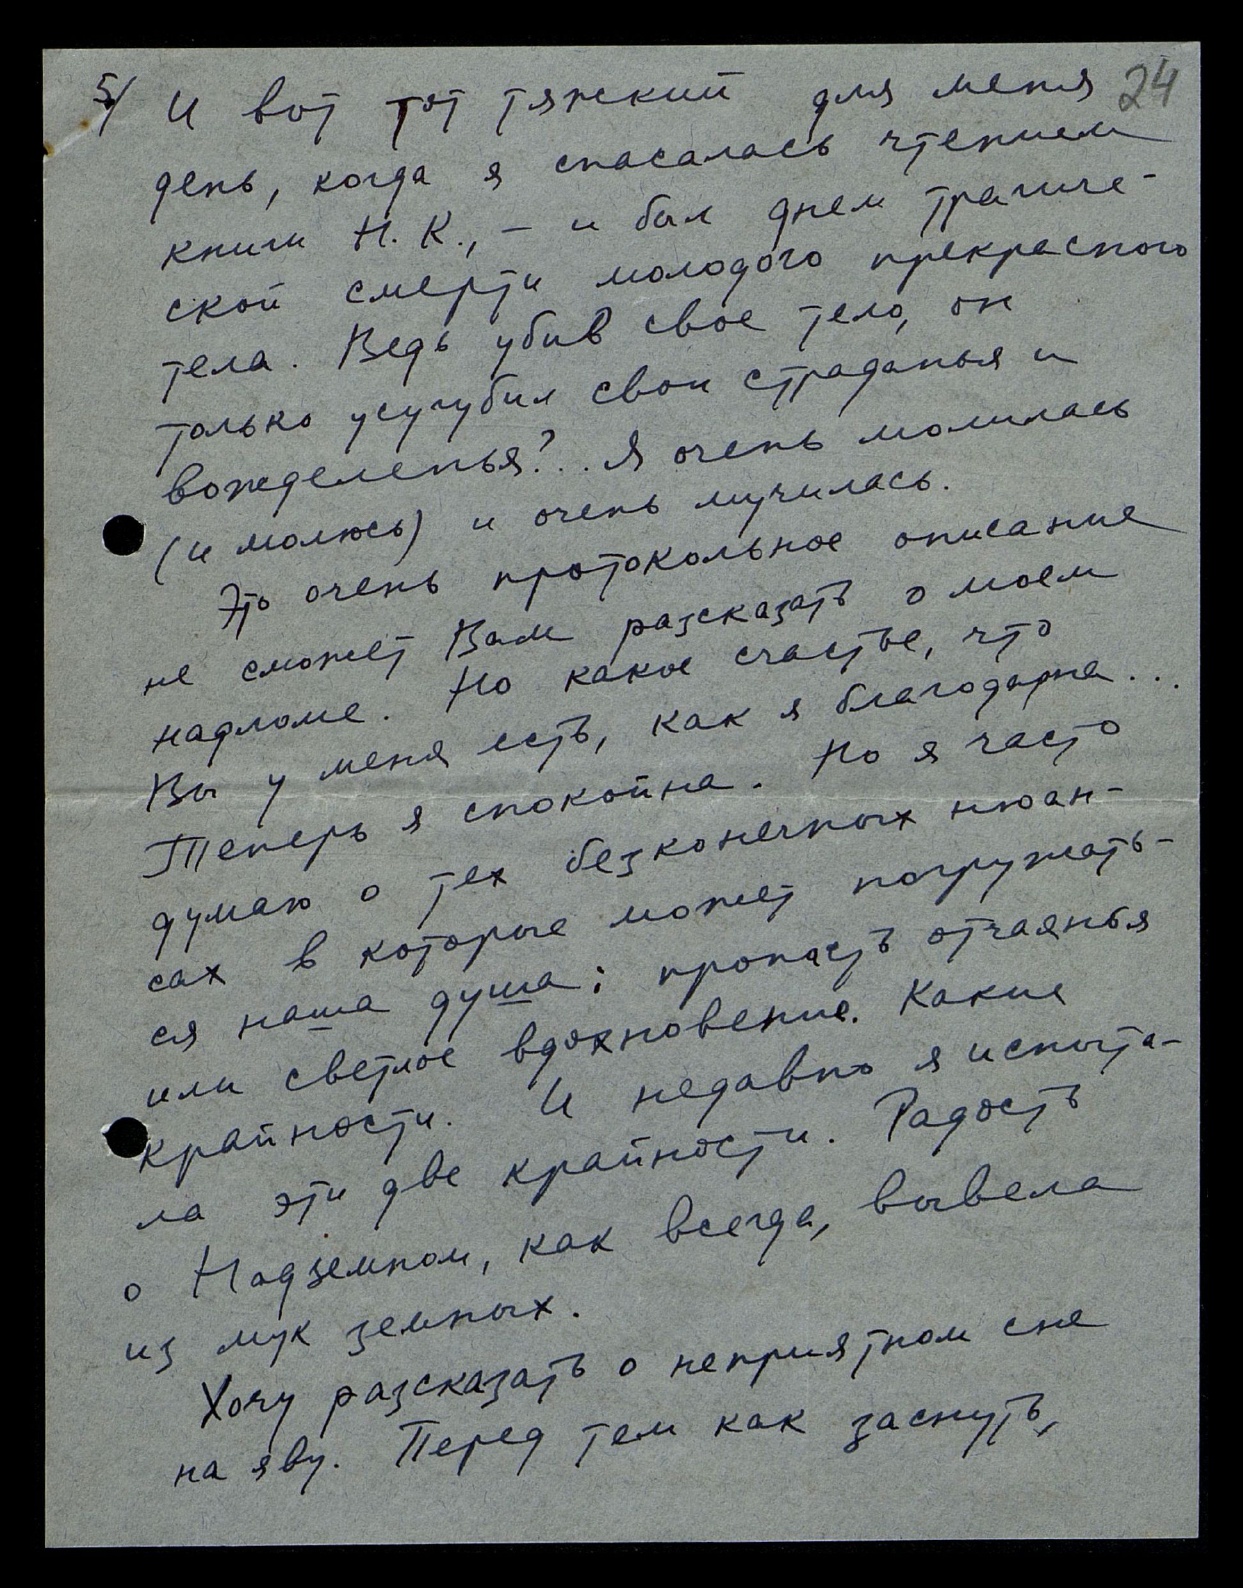 5/ И вот тот тяжкий для меня 24
день, когда я спасалась чтением
книги Н. К., – и был днем трагиче-
ской смерти молодого прекрасного
тела. Ведь убив свое тело, он
только усугубил свои страданья и
вожделенья?.. Я очень молилась
(и молюсь) и очень мучилась.
Это очень протокольное описание
не сможет Вам разсказать о моем
надломе. Но какое счастье, что
Вы у меня есть, как я благодарна...
Теперь я спокойна. Но я часто
думаю о тех безконечных нюан-
сах в которые может погружать-
ся наша душа: пропасть отчаянья
или светлое вдохновение. Какие
крайности. И недавно я испыта-
ла эти две крайности. Радость
о Надземном, как всегда, вывела
из мук земных.
Хочу разсказать о неприятном сне
на яву. Перед тем как заснуть,